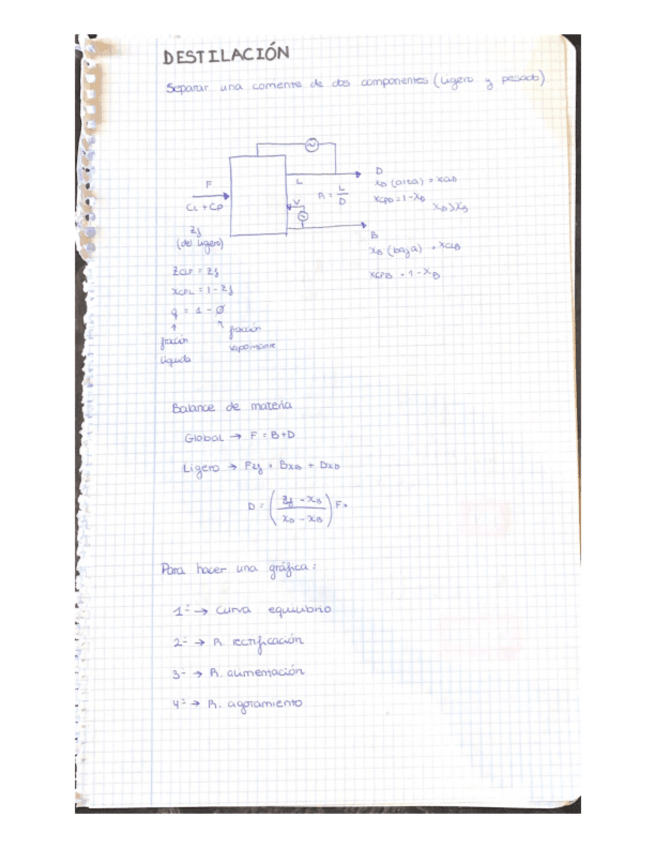 DESTILACIÓN
Separar una corriente de dos componentes (ligero y pesado)
F
CL + CP
zf
(del ligero)
L
R = L/D
V
D
xD (alta) = xCLD
xCPD = 1 - xD
xD > xB
B
xB (baja) = xCLB
xCPB = 1 - xB
zCLF = zf
xCPL = 1 - zf
q = 1 - Ø
fracción líquida
fracción vaporizante
Balance de materia
Global → F = B+D
Ligero → Fzf = BxB + DxD
D = ( zf - xB / xD - xB ) F
Para hacer una gráfica:
1º → Curva equilibrio
2º → R. rectificación
3º → R. alimentación
4º → R. agotamiento